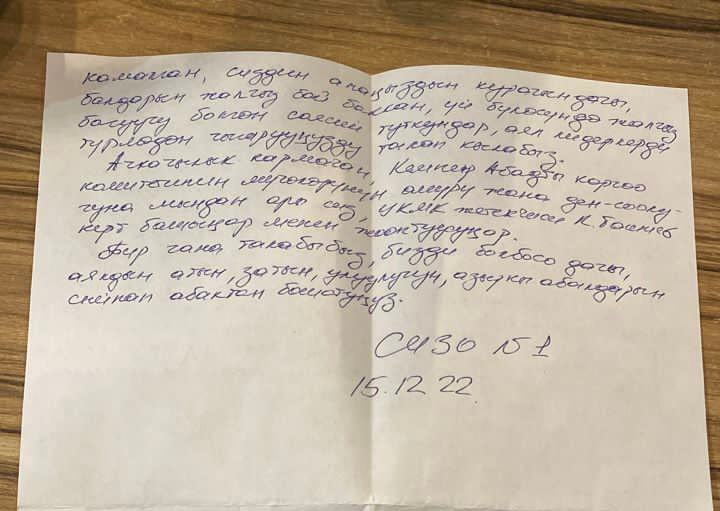 камаган, сиздин апаңыздын курагындагы,
балдарын жалгыз бой баккан, үй бүлөсүндө жалгыз
багуучу болгон саясий туткундар, аял лидерлерди
түрмөдөн чыгарууңузду талап кылабыз.
Ачкачылык кармаган, Кемпир Абадды коргоо
комитетинин мүчөлөрүнүн өмүрү жана ден-соолу-
гуна мындан ары сиз, УКМК жетекчиси К. Ташиев
жерт башыңар менен жооптуусуңар.
Бир гана талабыбыз, бизди болбосо дагы,
аялдын атын, затын, улуулугун, азыркы абалдарын
сыйлап абактан бошотуңуз.
СИЗО №1
15.12 22.